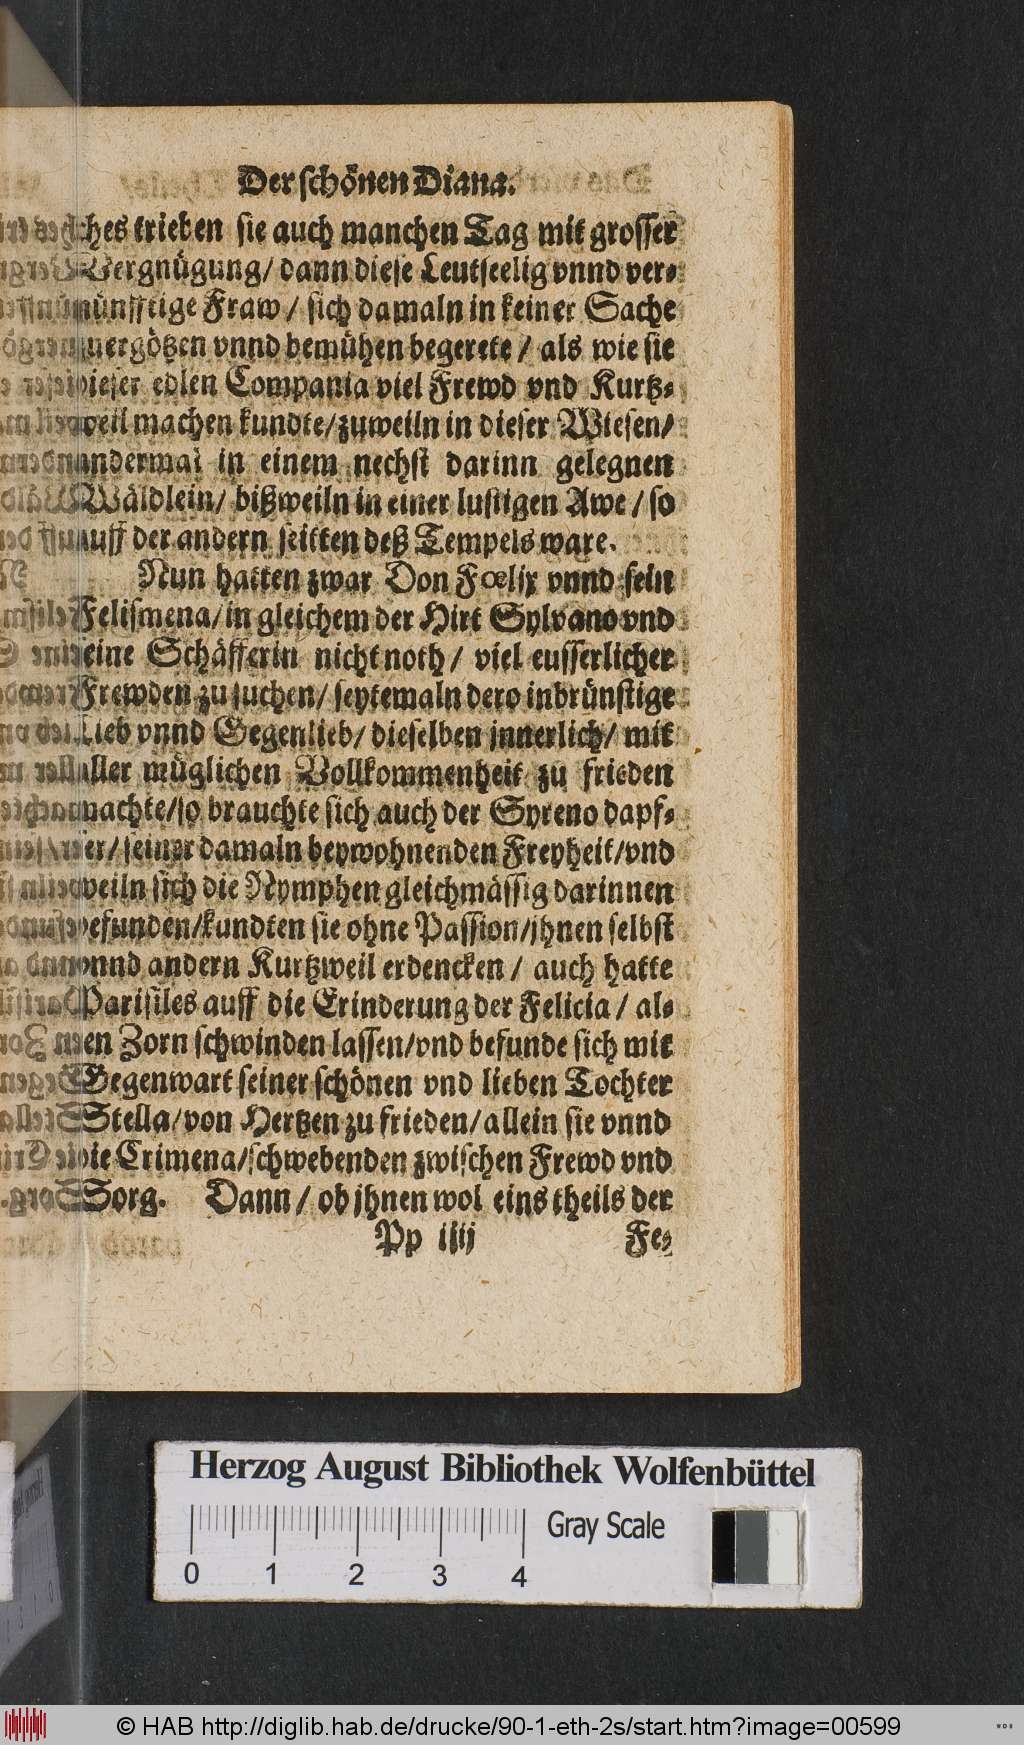 Der schönen Diana.
ches trieben sie auch manchen Tag mit grosser
Vergnügung/ dann diese Leutseelig vnnd ver-
münfftige Fraw / sich damaln in keiner Sache
mergötzen vnnd bemühen begerete / als wie sie
dieser edlen Compania viel Frewd vnd Kurtz-
weil machen kundte/ zuweiln in dieser Wiesen/
andermal in einem nechst darinn gelegnen
Wäldlein/ bißweiln in einer lustigen Awe / so
auff der andern seitten deß Tempels ware.
Nun hatten zwar Don Fœlix vnnd sein
Felismena/ in gleichem der Hirt Sylvano vnd
seine Schäfferin nicht noth / viel eusserlicher
Frewden zu suchen/ seytemaln dero inbrünstige
Lieb vnnd Gegenlieb/ dieselben jnnerlich/ mit
aller müglichen Vollkommenheit zu frieden
machte/ so brauchte sich auch der Syreno dapf-
fer/ seiner damaln beywohnenden Freyheit/ vnd
weiln sich die Nymphen gleichmässig darinnen
befunden/ kundten sie ohne Passion/ jhnen selbst
vnnd andern Kurtzweil erdencken / auch hatte
Parisiles auff die Erinderung der Felicia / al-
len Zorn schwinden lassen/ vnd befunde sich mit
Gegenwart seiner schönen vnd lieben Tochter
Stella/ von Hertzen zu frieden/ allein sie vnnd
die Crimena/ schwebenden zwischen Frewd vnd
Sorg. Dann / ob jhnen wol eins theils der
Pp iiij Fe-
Herzog August Bibliothek Wolfenbüttel
Gray Scale
0 1 2 3 4
© HAB http://diglib.hab.de/drucke/90-1-eth-2s/start.htm?image=00599